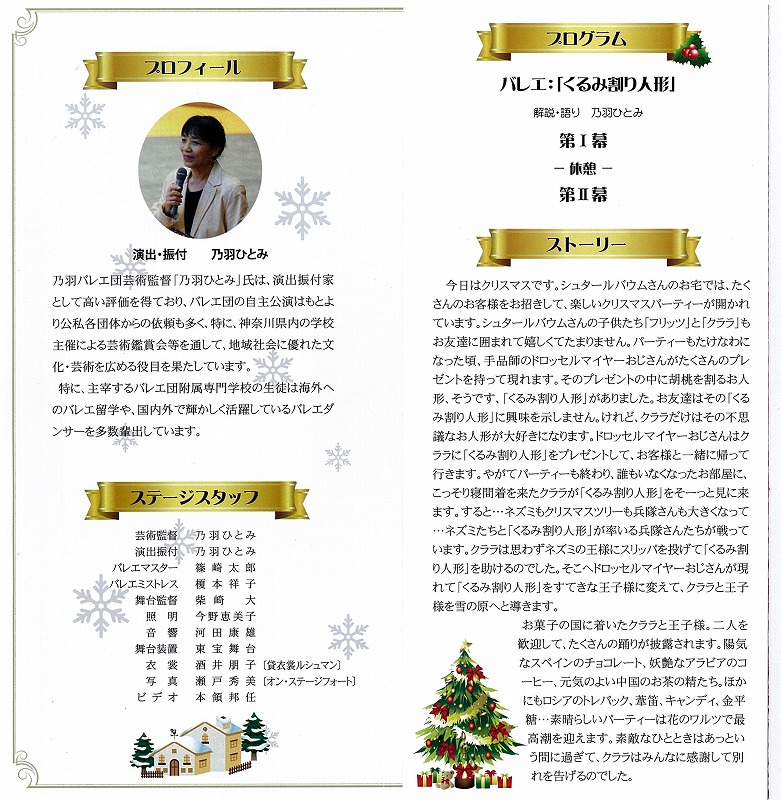 プロフィール
演出・振付　乃羽ひとみ
乃羽バレエ団芸術監督「乃羽ひとみ」氏は、演出振付家
として高い評価を得ており、バレエ団の自主公演はもとよ
り公私各団体からの依頼も多く、特に、神奈川県内の学校
主催による芸術鑑賞会等を通して、地域社会に優れた文
化・芸術を広める役目を果たしています。
特に、主宰するバレエ団附属専門学校の生徒は海外へ
のバレエ留学や、国内外で輝かしく活躍しているバレエダ
ンサーを多数輩出しています。
ステージスタッフ
芸術監督　乃羽ひとみ
演出振付　乃羽ひとみ
バレエマスター　篠崎太郎
バレエミストレス　榎本祥子
舞台監督　柴崎　大
照明　今野恵美子
音響　河田康雄
舞台装置　東宝舞台
衣裳　酒井朋子〔貸衣裳ルシュマン〕
写真　瀬戸秀美〔オン・ステージフォート〕
ビデオ　本領邦任
プログラム
バレエ：「くるみ割り人形」
解説・語り　乃羽ひとみ
第Ⅰ幕
－休憩－
第Ⅱ幕
ストーリー
今日はクリスマスです。シュタールバウムさんのお宅では、たく
さんのお客様をお招きして、楽しいクリスマスパーティーが開かれ
ています。シュタールバウムさんの子供たち「フリッツ」と「クララ」も
お友達に囲まれて嬉しくてたまりません。パーティーもたけなわに
なった頃、手品師のドロッセルマイヤーおじさんがたくさんのプレ
ゼントを持って現れます。そのプレゼントの中に胡桃を割るお人
形、そうです、「くるみ割り人形」がありました。お友達はその「くる
み割り人形」に興味を示しません。けれど、クララだけはその不思
議なお人形が大好きになります。ドロッセルマイヤーおじさんはク
ララに「くるみ割り人形」をプレゼントして、お客様と一緒に帰って
行きます。やがてパーティーも終わり、誰もいなくなったお部屋に、
こっそり寝間着を来たクララが「くるみ割り人形」をそーっと見に来
ます。すると…ネズミもクリスマスツリーも兵隊さんも大きくなって
…ネズミたちと「くるみ割り人形」が率いる兵隊さんたちが戦って
います。クララは思わずネズミの王様にスリッパを投げて「くるみ割
り人形」を助けるのでした。そこへドロッセルマイヤーおじさんが現
れて「くるみ割り人形」をすてきな王子様に変えて、クララと王子
様を雪の原へと導きます。
お菓子の国に着いたクララと王子様。二人を
歓迎して、たくさんの踊りが披露されます。陽気
なスペインのチョコレート、妖艶なアラビアのコ
ーヒー、元気のよい中国のお茶の精たち。ほか
にもロシアのトレパック、葦笛、キャンディ、金平
糖…素晴らしいパーティーは花のワルツで最
高潮を迎えます。素敵なひとときはあっとい
う間に過ぎて、クララはみんなに感謝して別
れを告げるのでした。